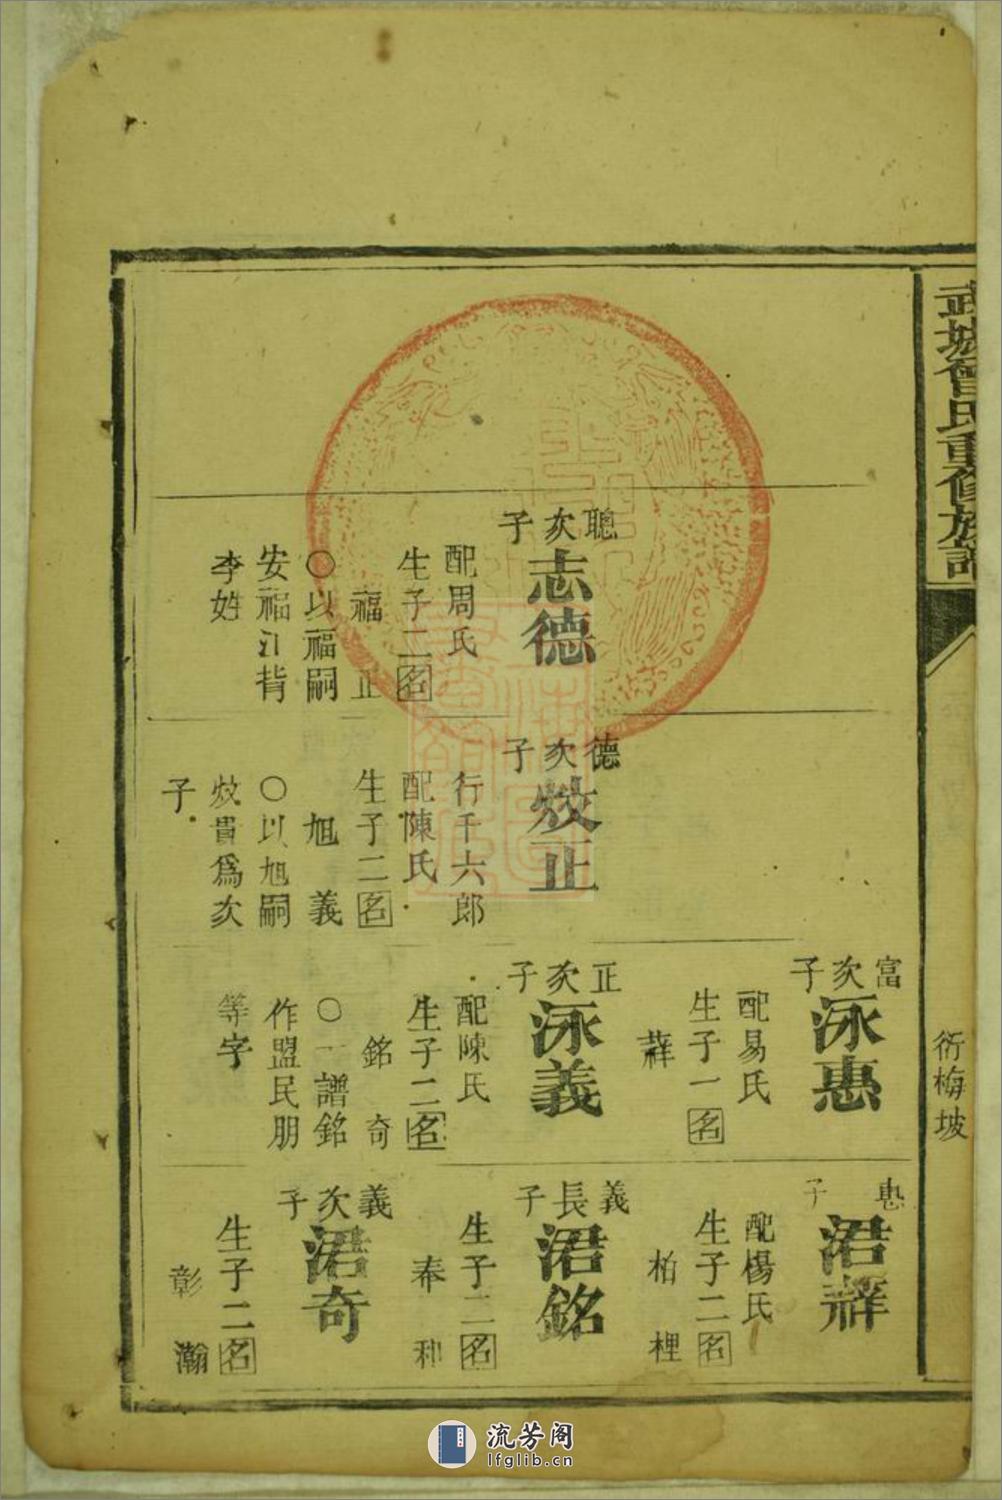 武城曾氏重修族譜
衍梅坡
聰次子
志德
配周氏
生子二名
福 正
○以福嗣
安福江背
李姓
德次子
炆正
行千六郎
配陳氏
生子二名
旭 義
○以旭嗣
炆貴爲次
子
富次子
泳惠
配易氏
生子一名
正次子
泳義
配陳氏
生子二名
銘 奇
○一譜銘
作盟民朋
等字
惠子
配楊氏
生子二名
柏 梩
義長子
涒銘
生子二名
奉 种
義次子
涒奇
生子二名
彰 瀚
流芳阁
lfglib.cn